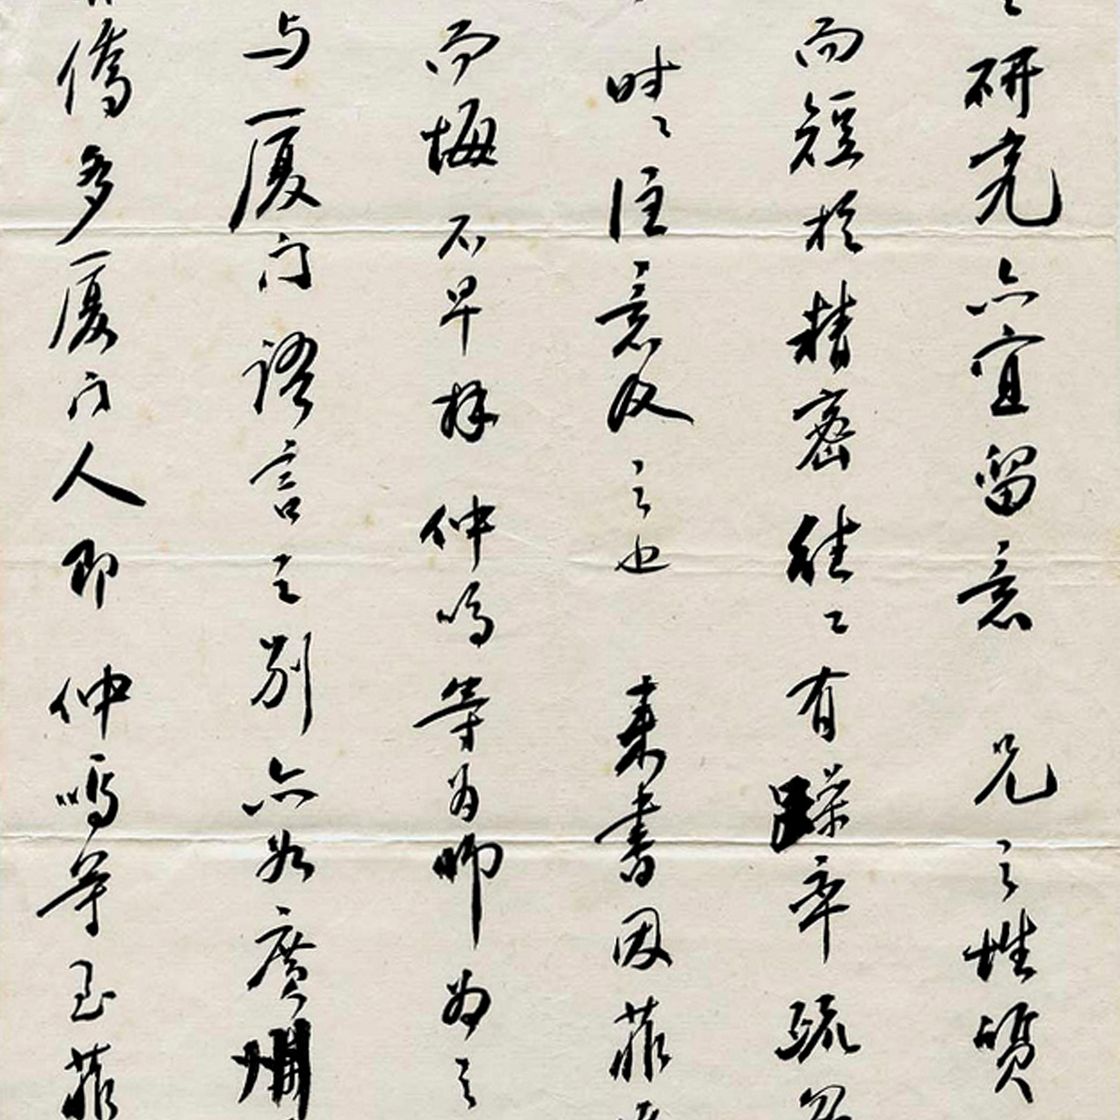 研究亦宜留意兄之性质
而短於精密往々有躁率疏忽
时々注意及之也来书因菲
而悔不早拜仲鸣等为师为之
与厦门语言之别亦如廣州
侨多厦门人即仲鸣等至菲